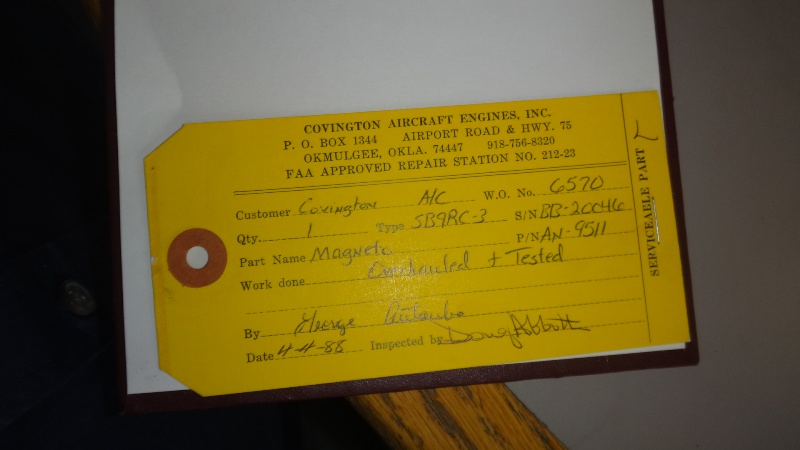 COVINGTON AIRCRAFT ENGINES, INC.
P. O. BOX 1344 AIRPORT ROAD & HWY. 75
OKMULGEE, OKLA. 74447 918-756-8320
FAA APPROVED REPAIR STATION NO. 212-23
Customer Covington A/C W.O. No. 6570
Qty. 1 Type SB9RC-3 S/N BB-20046
Part Name Magneto P/N AN-9511
Work done Overhauled + Tested
By George
Date 4-4-88 Inspected by Doug Abbott
SERVICEABLE PART